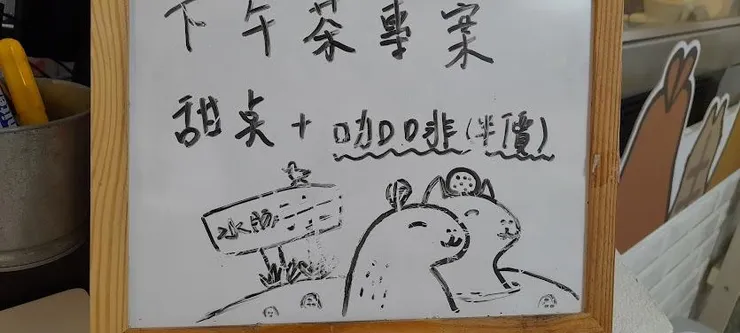 下午茶專案
甜桌+咖啡(半價)
水豚